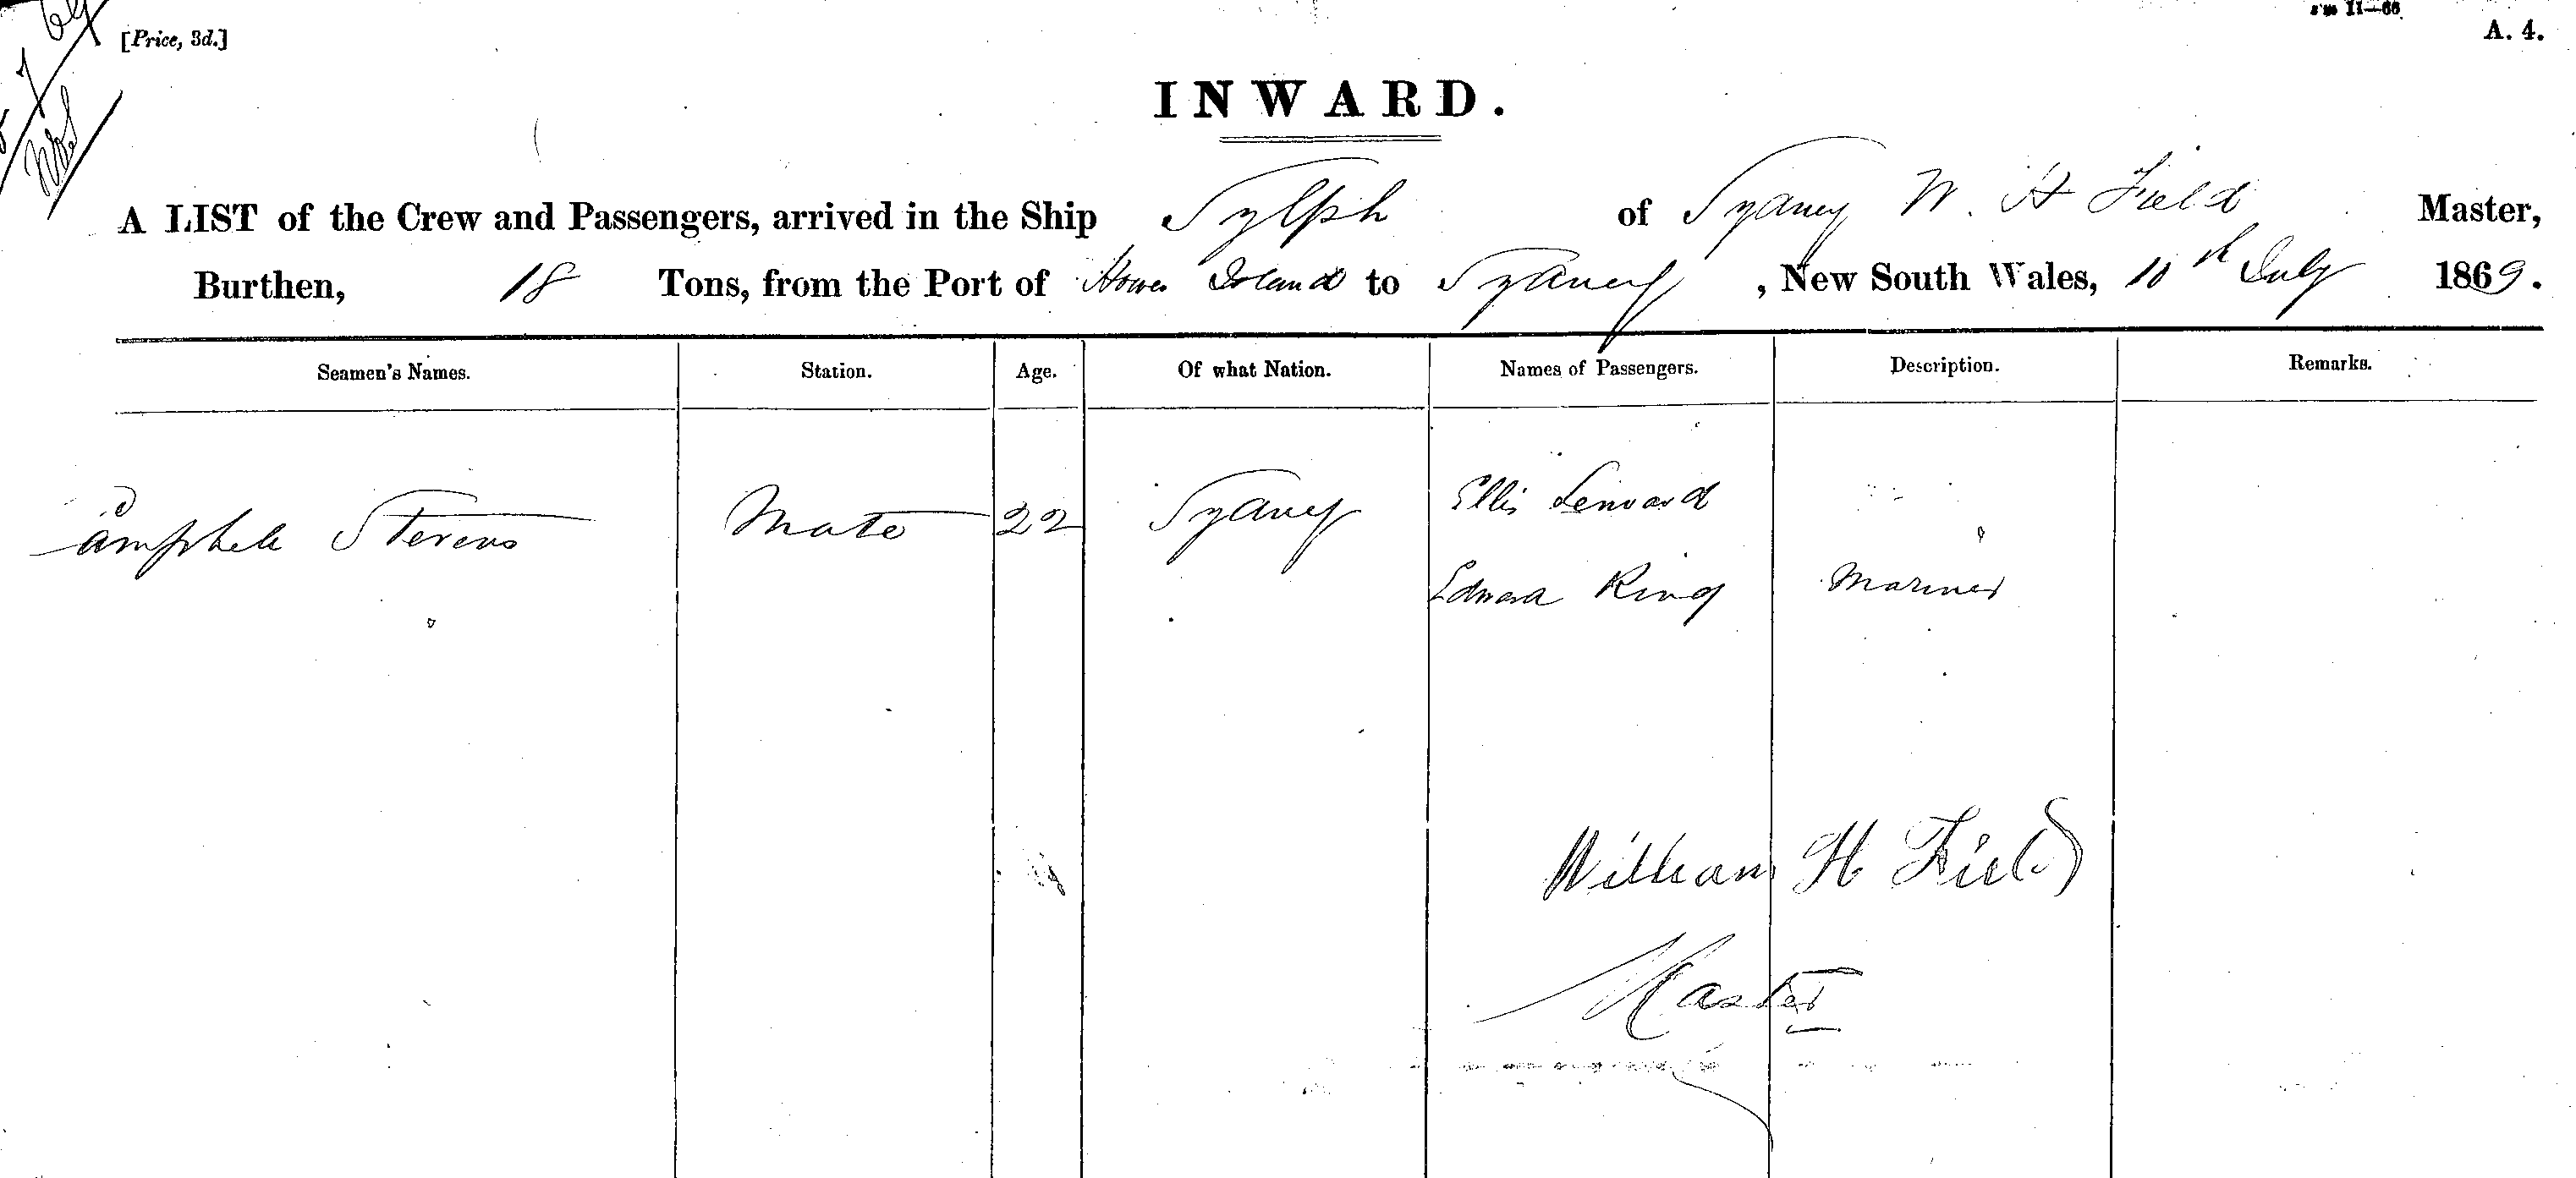 [Price, 3d.]
A. 4.
INWARD.
A LIST of the Crew and Passengers, arrived in the Ship Sylph of Sydney W. H Field Master,
Burthen, 18 Tons, from the Port of Howes Island to Sydney, New South Wales, 10th July 1869.
Seamen's Names. Station. Age. Of what Nation. Names of Passengers. Description. Remarks.
Stevens Mate 22 Sydney Ellis
Edward King Mariner
William H Field
Master